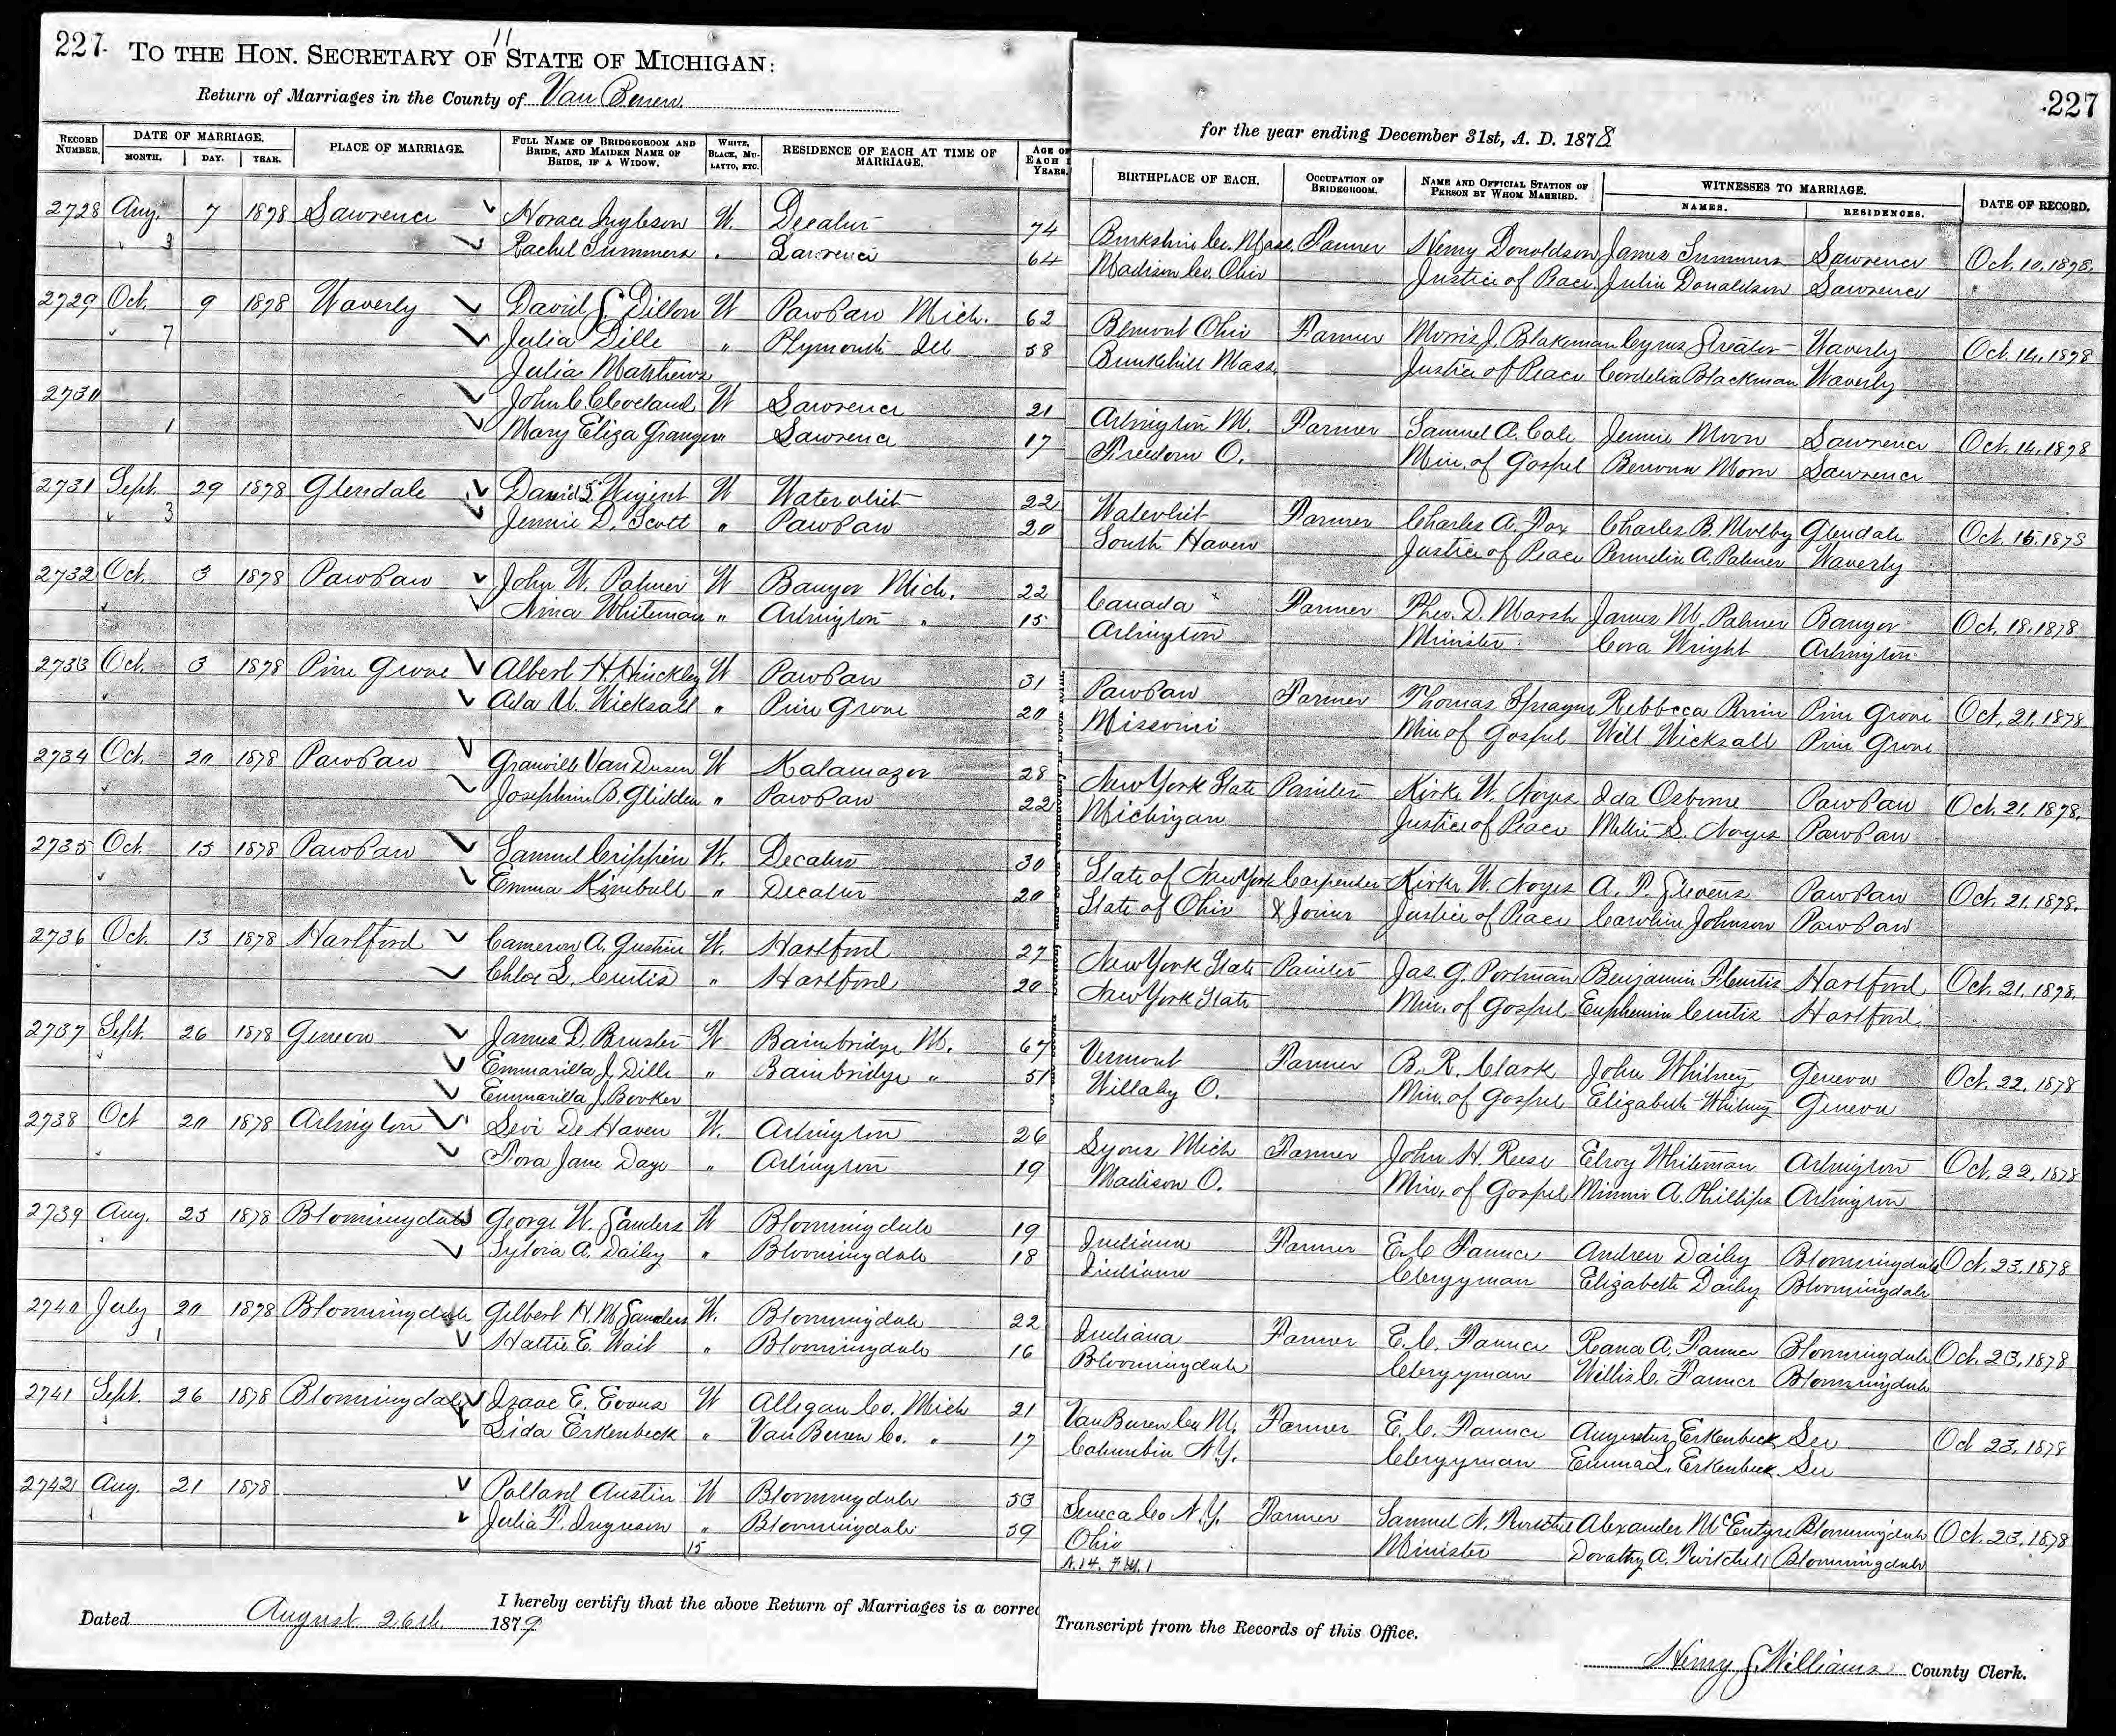 227
11
TO THE HON. SECRETARY OF STATE OF MICHIGAN:
227
Return of Marriages in the County of Van Buren
for the year ending December 31st, A. D. 1878
RECORD NUMBER. DATE OF MARRIAGE. MONTH. DAY. YEAR. PLACE OF MARRIAGE. FULL NAME OF BRIDEGROOM AND BRIDE, AND MAIDEN NAME OF BRIDE, IF A WIDOW. WHITE, BLACK, MULATTO, ETC. RESIDENCE OF EACH AT TIME OF MARRIAGE. AGE OF EACH YEARS. BIRTHPLACE OF EACH. OCCUPATION OF BRIDEGROOM. NAME AND OFFICIAL STATION OF PERSON BY WHOM MARRIED. WITNESSES TO MARRIAGE. NAMES. RESIDENCES. DATE OF RECORD.
2728 Aug. 7 1878 Lawrence Horace W. Decatur 74 Burkshire Co. Mass. Farmer Henry Donaldson James Summers Lawrence Oct. 10, 1878.
3 Rachel Summers " Lawrence 64 Madison Co. Ohio Justice of Peace Julia Donaldson Lawrence
2729 Oct. 9 1878 Waverly David S. Dillon W PawPaw Mich. 62 Ohio Farmer Morris J. Blakeman Cyrus Streator Waverly Oct. 14, 1878
7 Julia Dille " Plymouth Ill 58 Bunkhill Mass. Justice of Peace Cordelia Blackman Waverly
Julia Matthews
2730 John C. Cleveland W Lawrence 21 Arlington M. Farmer Samuel A. Cole Jennie Moon Lawrence Oct. 14, 1878
1 Mary Eliza Granger " Lawrence 17 Freedom O. Min. of Gospel Moon Lawrence
2731 Sept. 29 1878 Glendale David S. Wigent W Watervliet 22 Watervliet Farmer Charles A. Fox Charles B. Glendale Oct. 15. 1878
3 Jennie D. Scott " PawPaw 20 South Haven Justice of Peace A. Palmer Waverly
2732 Oct. 3 1878 PawPaw John W. Palmer W Bangor Mich. 22 Canada Farmer Theo. D. Marsh James M. Palmer Bangor Oct. 18, 1878
Anna Whiteman " Arlington " 15 Arlington Minister Cora Wright Arlington
2733 Oct. 3 1878 Pine Grove Albert H. Hinckley W PawPaw 31 PawPaw Farmer Thomas Sprague Rebbecca Pine Grove Oct. 21, 1878
Ada U. Wicksall " Pine Grove 20 Missouri Min of Gospel Will Wicksall Pine Grove
2734 Oct. 20 1878 PawPaw Granville Van Dusen W Kalamazoo 28 New York State Painter Kirke W. Noyes Ida Osborne PawPaw Oct. 21, 1878.
Josephine B. Glidden " PawPaw 22 Michigan Justice of Peace Millie S. Noyes PawPaw
2735 Oct. 15 1878 PawPaw Samuel Crippin W. Decatur 30 State of New York Carpenter Kirke W. Noyes A. P. Stevens PawPaw Oct. 21, 1878.
Emma Kimball " Decatur 20 State of Ohio & Joiner Justice of Peace Caroline Johnson PawPaw
2736 Oct. 13 1878 Hartford Cameron A. Gustine W. Hartford 27 New York State Painter Jas. G. Portman Benjamin F Curtis Hartford Oct. 21, 1878.
Chloe L. Curtis " Hartford 20 New York State Min. of Gospel Euphemia Curtis Hartford
2737 Sept. 26 1878 Geneva James D. Bruster W Bainbridge M. 67 Vermont Farmer B. R. Clark John Whitney Geneva Oct. 22, 1878
Emmarilla J. Dille " Bainbridge " 51 Willaby O. Min. of Gospel Elizabeth Whitney Geneva
Emmarilla J. Booker
2738 Oct 20 1878 Arlington Levi De Haven W. Arlington 26 Lyons Mich Farmer John H. Reese Elroy Whiteman Arlington Oct. 22, 1878
Flora Jane Daye " Arlington 19 Madison O. Min. of Gospel Minnie A. Phillips Arlington
2739 Aug. 25 1878 Bloomingdale George W. Sanders W Bloomingdale 19 Indiana Farmer E. C. Fanner Andrew Dailey Bloomingdale Oct. 23, 1878
Sylvia A. Dailey " Bloomingdale 18 Indiana Clergyman Elizabeth Dailey Bloomingdale
2740 July 20 1878 Bloomingdale Gilbert H. M. Sanders W. Bloomingdale 22 Indiana Farmer E. C. Fanner Rana A. Fanner Bloomingdale Oct. 23, 1878
1 Hattie E. Wait " Bloomingdale 16 Bloomingdale Clergyman Willis C. Fanner Bloomingdale
2741 Sept. 26 1878 Bloomingdale Isaac E. Evans W Allegan Co. Mich 21 Van Buren Co. M. Farmer E. C. Fanner Augustus Erkenbeck Lee Oct 23, 1878
Lida Erkenbeck " Van Buren Co. " 17 Columbia N.Y. Clergyman Emma L. Erkenbeck Lee
2742 Aug. 21 1878 Pollard Austin W Bloomingdale 53 Seneca Co N.Y. Farmer Samuel N. Twitchel Alexander McEntyre Bloomingdale Oct. 23, 1878
Julia F. " Bloomingdale 59 Ohio Minister Dorathy A. Twitchell Bloomingdale
15
I hereby certify that the above Return of Marriages is a correct
Transcript from the Records of this Office.
Dated August 26th 1879
Henry S. Williams County Clerk.